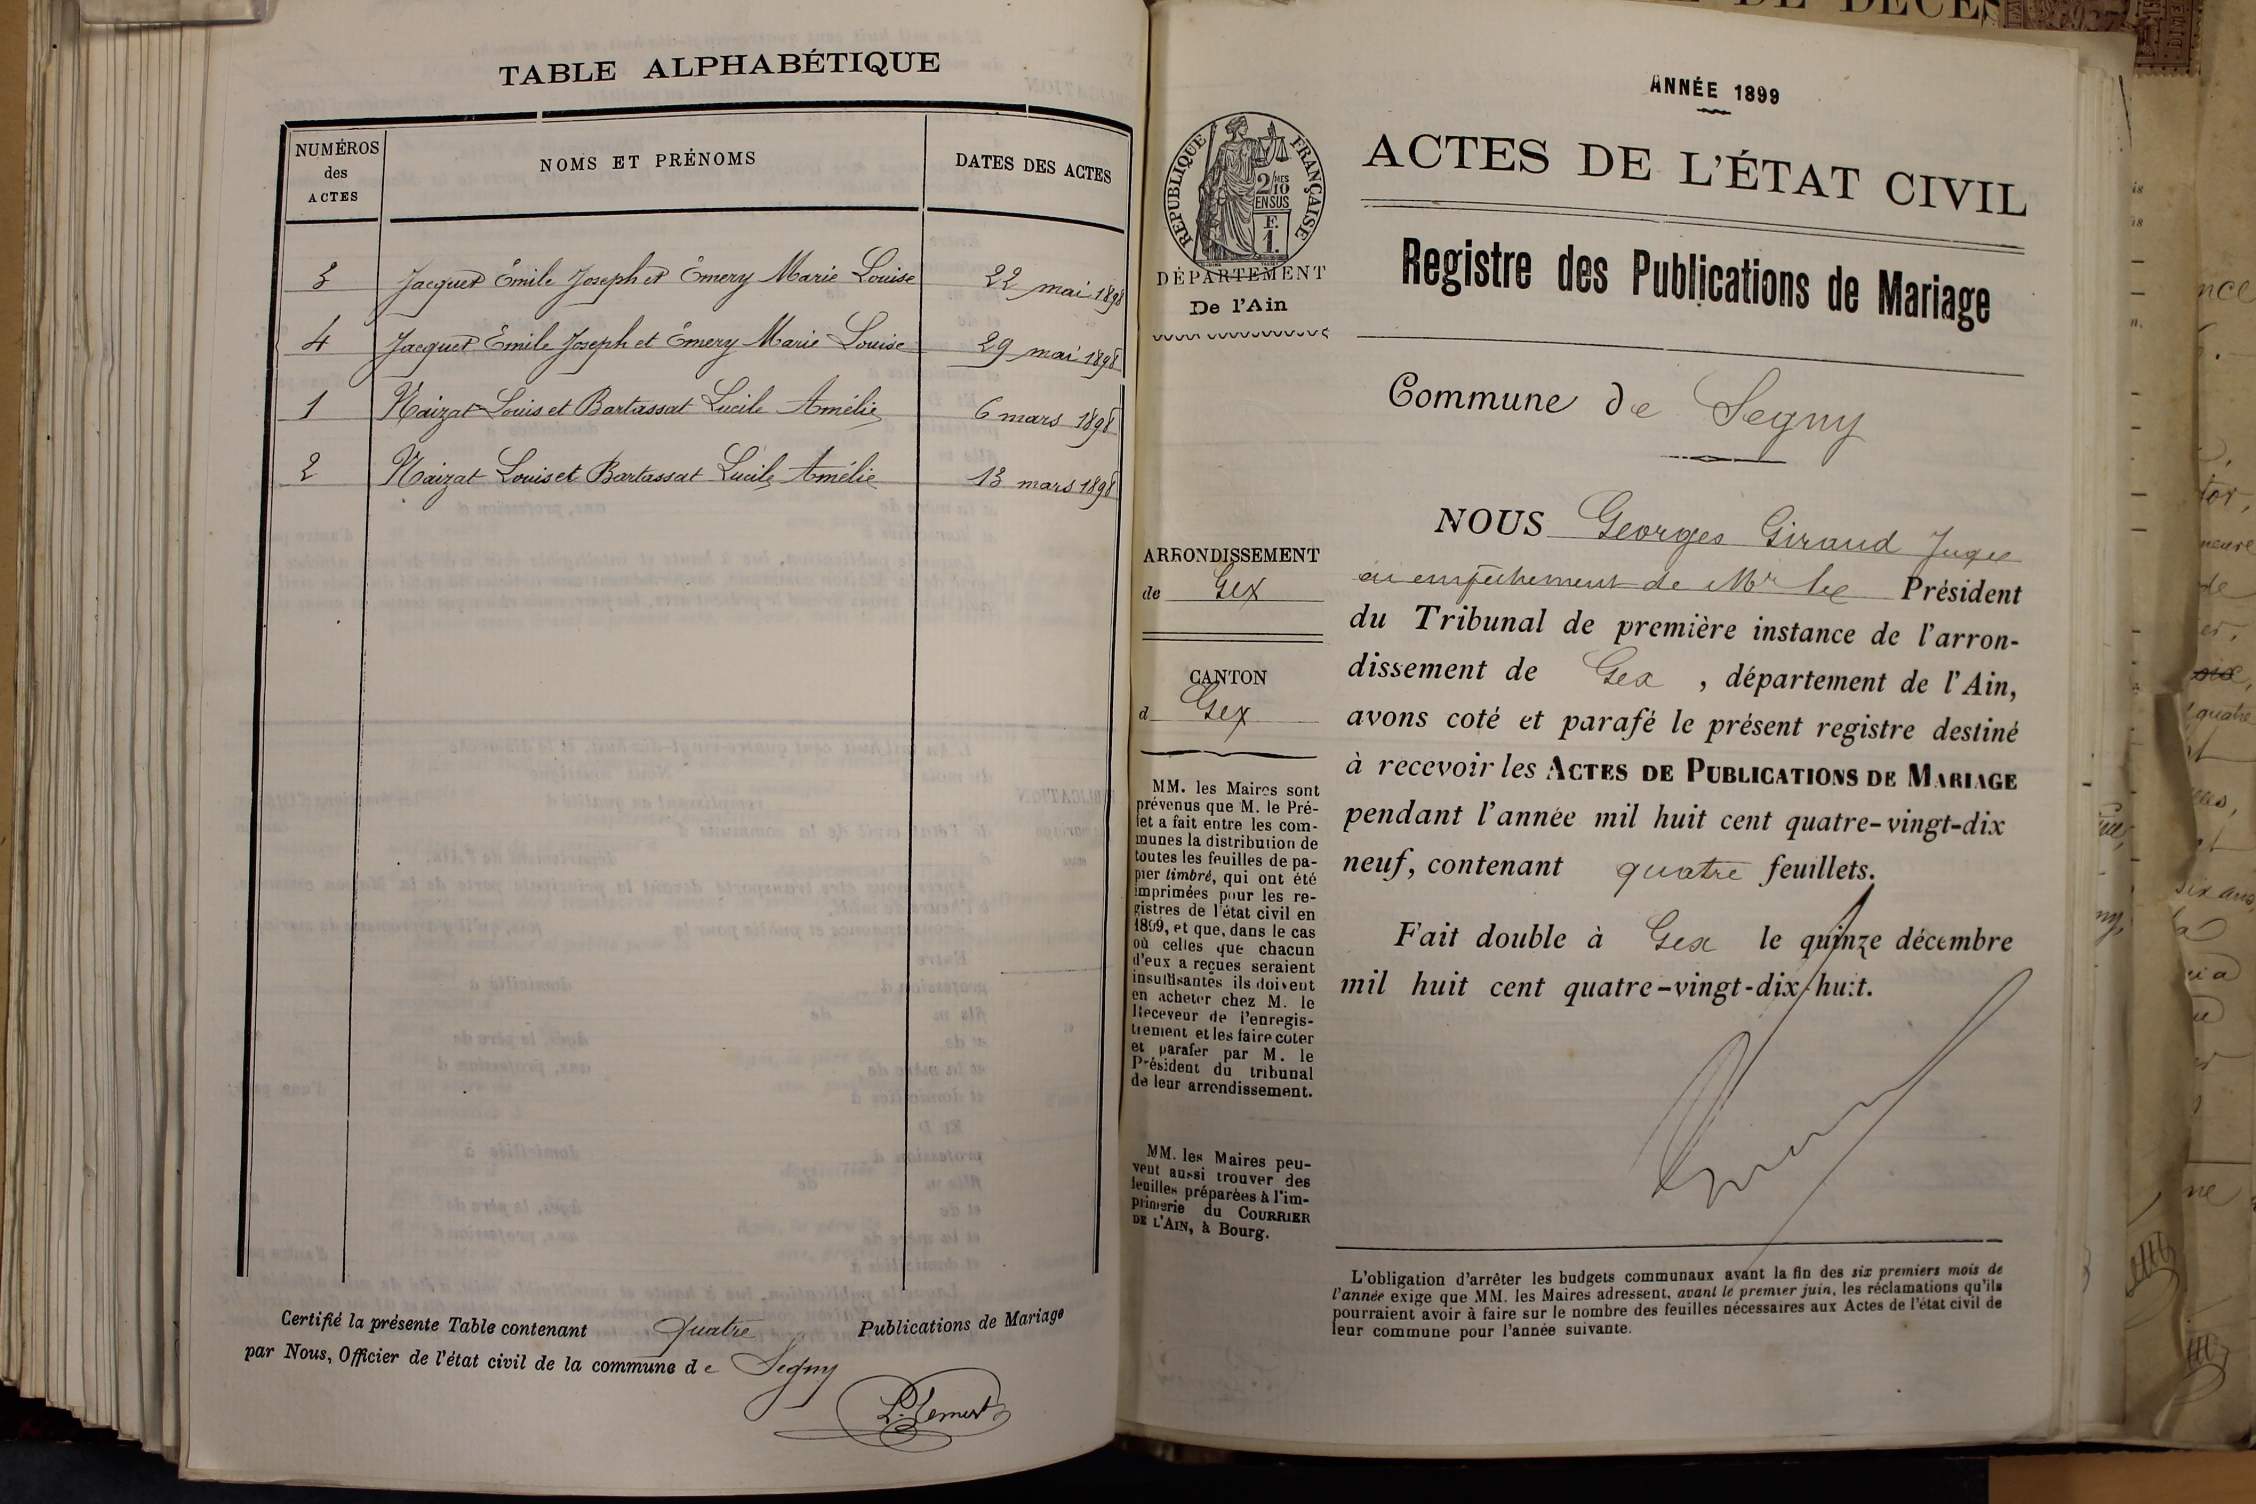 TABLE ALPHABÉTIQUE
NUMÉROS
des
ACTES
NOMS ET PRÉNOMS
DATES DES ACTES
3 Jacquet Émile Joseph et Émery Marie Louise 22 mai 1898
4 Jacquet Émile Joseph et Émery Marie Louise 29 mai 1898
1 Naizat Louis et Bartassat Lucile Amélie 6 mars 1898
2 Naizat Louis et Bartassat Lucile Amélie 13 mars 1898
Certifié la présente Table contenant quatre Publications de Mariage
par Nous, Officier de l'état civil de la commune de Segny
ANNÉE 1899
RÉPUBLIQUE FRANÇAISE
2/10 MES
EN SUS
F.
1.
DÉPARTEMENT
De l'Ain
ACTES DE L'ÉTAT CIVIL
Registre des Publications de Mariage
Commune de Segny
ARRONDISSEMENT
de Gex
CANTON
d Gex
MM. les Maires sont
prévenus que M. le Pré-
fet a fait entre les com-
munes la distribution de
toutes les feuilles de pa-
pier timbré, qui ont été
imprimées pour les re-
gistres de l'état civil en
1899, et que, dans le cas
où celles que chacun
d'eux a reçues seraient
insuffisantes ils doivent
en acheter chez M. le
Receveur de l'enregis-
trement et les faire coter
et parafer par M. le
Président du tribunal
de leur arrondissement.
MM. les Maires peu-
vent aussi trouver des
feuilles préparées à l'im-
primerie du COURRIER
DE L'AIN, à Bourg.
NOUS Georges Giraud Juge
en empêchement de Mr le Président
du Tribunal de première instance de l'arron-
dissement de Gex , département de l'Ain,
avons coté et parafé le présent registre destiné
à recevoir les ACTES DE PUBLICATIONS DE MARIAGE
pendant l'année mil huit cent quatre-vingt-dix
neuf, contenant quatre feuillets.
Fait double à Gex le quinze décembre
mil huit cent quatre-vingt-dix-huit.
L'obligation d'arrêter les budgets communaux avant la fin des six premiers mois de
l'année exige que MM. les Maires adressent, avant le premier juin, les réclamations qu'ils
pourraient avoir à faire sur le nombre des feuilles nécessaires aux Actes de l'état civil de
leur commune pour l'année suivante.